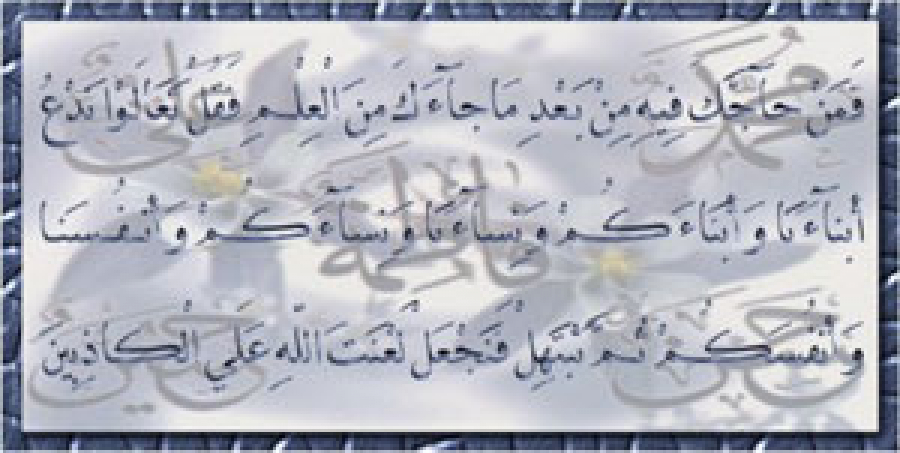 فَمَنْ حَاجَّكَ فِيهِ مِنْ بَعْدِ مَا جَآءَكَ مِنَ الْعِلْمِ فَقُلْ تَعَالَوْا نَدْعُ
أَبْنَآءَنَا وَأَبْنَآءَكُمْ وَنِسَآءَنَا وَنِسَآءَكُمْ وَأَنْفُسَنَا
وَأَنْفُسَكُمْ ثُمَّ نَبْتَهِلْ فَنَجْعَلْ لَعْنَتَ اللّٰهِ عَلَى الْكَاذِبِينَ
محمد
علي
فاطمة
حسن
حسين